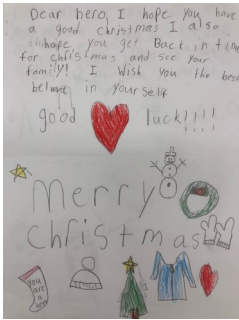 Dear hero, I hope you have
a good christmas I also
hope you get Back in time
for christmas and see your
family! I Wish you the best
in your self
good luck!!!!
Merry
christmas
you are a hero